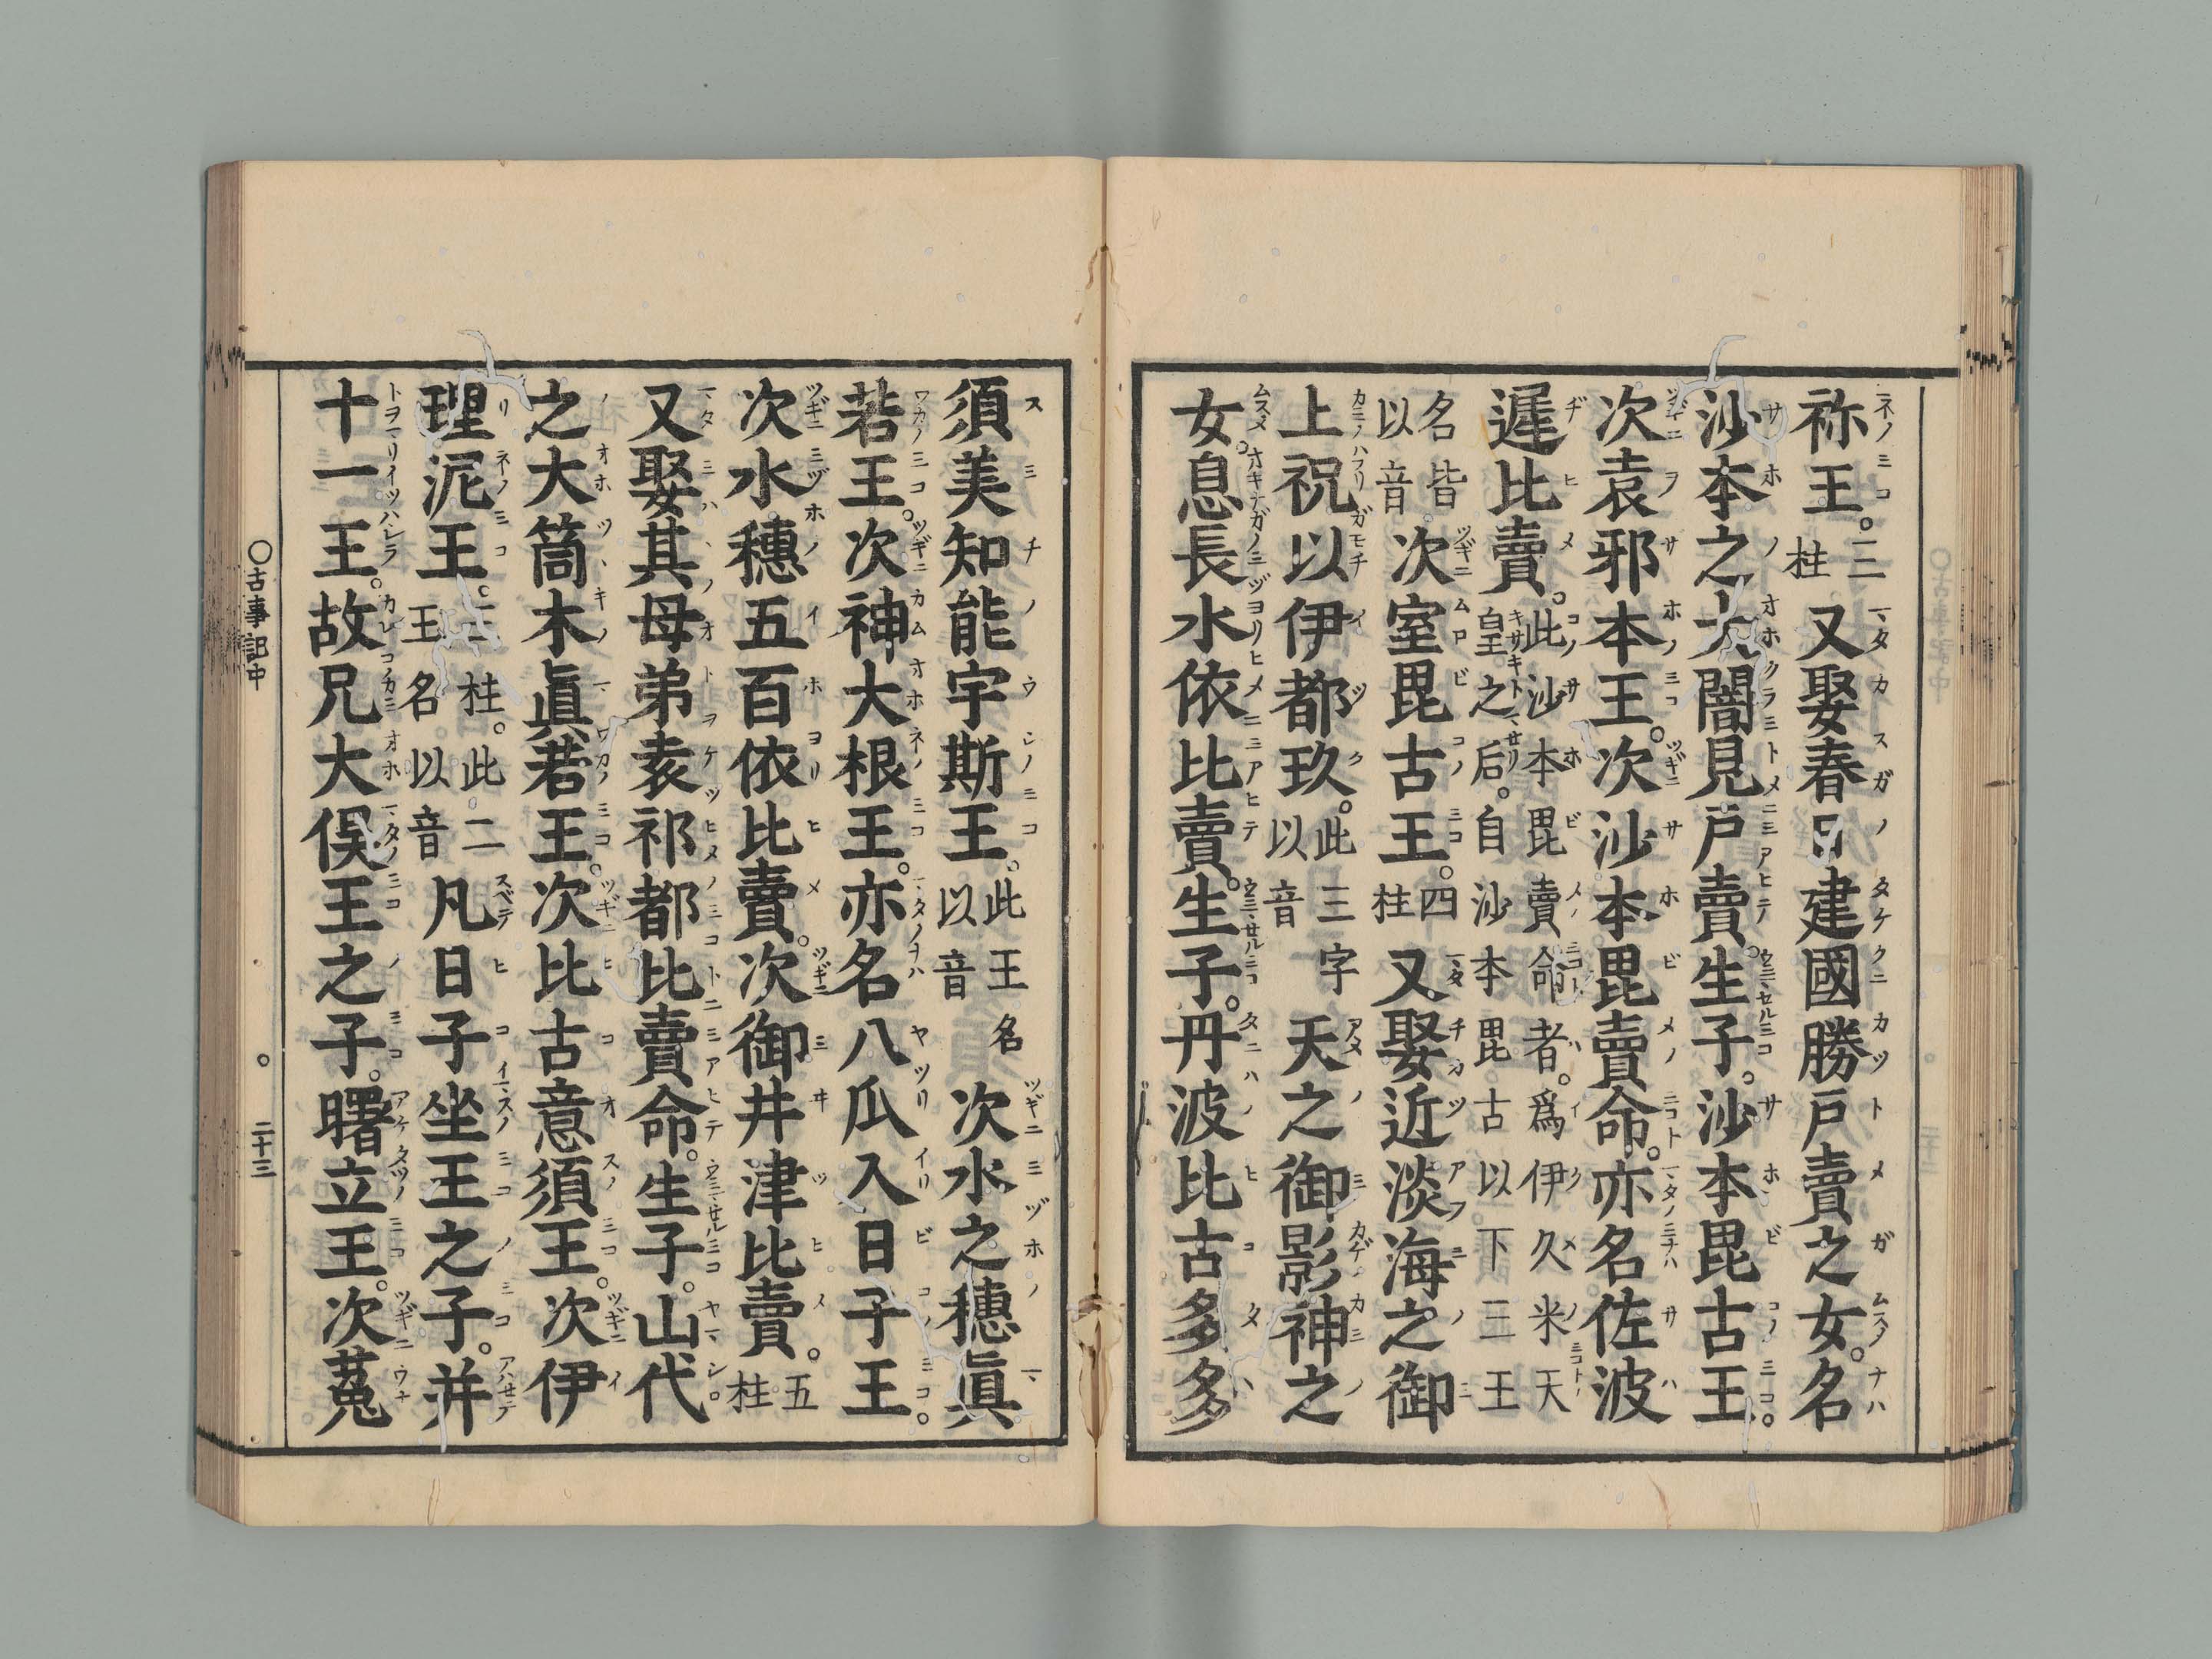 祢王。二柱又娶春日建國勝戸賣之女。名
沙本之大闇見戸賣。生子。沙本毘古王。
次袁邪本王。次沙本毘賣命。亦名佐波
遲比賣。此沙本毘賣命者。爲伊久米天皇之后。自沙本毘古以下三王
名皆以音次室毘古王。四柱又娶近淡海之御
上祝以伊都玖。此三字以音天之御影神之
女。息長水依比賣。生子。丹波比古多多
須美知能宇斯王。此王名以音次水之穗眞
若王。次神大根王。亦名八瓜入日子王。
次水穗五百依比賣。次御井津比賣。五柱
又娶其母弟袁祁都比賣命。生子。山代
之大筒木眞若王。次比古意須王。次伊
理泥王。三柱。此二王名以音凡日子坐王之子。并
十一王。故兄大俣王之子。曙立王。次菟
○古事記中 二十三